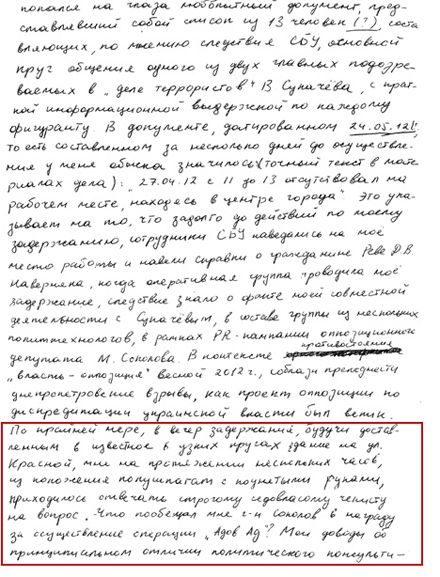 попался на глаза любопытный документ, пред-
ставлявший собой список из 13 человек (!), соста
вляющих, по мнению следствия СБУ, основной
круг общения одного из двух главных подозре-
ваемых в „деле террористов" В Сукачёва, с крат-
кой информационной выдержкой по каждому
фигуранту В документе, датированном 24.05.12!!
то есть составленном за несколько дней до осуществле-
ния у меня обыска значилось (точный текст в мате-
риалах дела): „27.04.12 с 11 до 13 отсутствовал на
рабочем месте, находясь в центре города" Это ука-
зывает на то, что задолго до действий по моему
задержанию, сотрудники СБУ наведались на моё
место работы и навели справки о гражданине Реве Д.В.
Наверняка, когда оперативная группа проводила моё
задержание, следствие знало о факте моей совместной
деятельности с Сукачёвым, в составе группы из нескольких
политтехнологов, в рамках PR-кампании оппозиционного
депутата М. Соколова. В контексте противостояния
„власть-оппозиция" весной 2012 г., соблазн преподнести
днепропетровские взрывы, как проект оппозиции по
дискредитации украинской власти был велик.
По крайней мере, в вечер задержания, будучи достав-
ленным в известное в узких кругах здание на ул.
Красной, мне на протяжении нескольких часов,
из положения полушпагат с поднятыми руками,
приходилось отвечать строгому седовласому чекисту
на вопрос. Что пообещал мне г-н Соколов в награду
за осуществление операции „Адов Ад"? Мои доводы об
принципиальном отличии политического консульти-